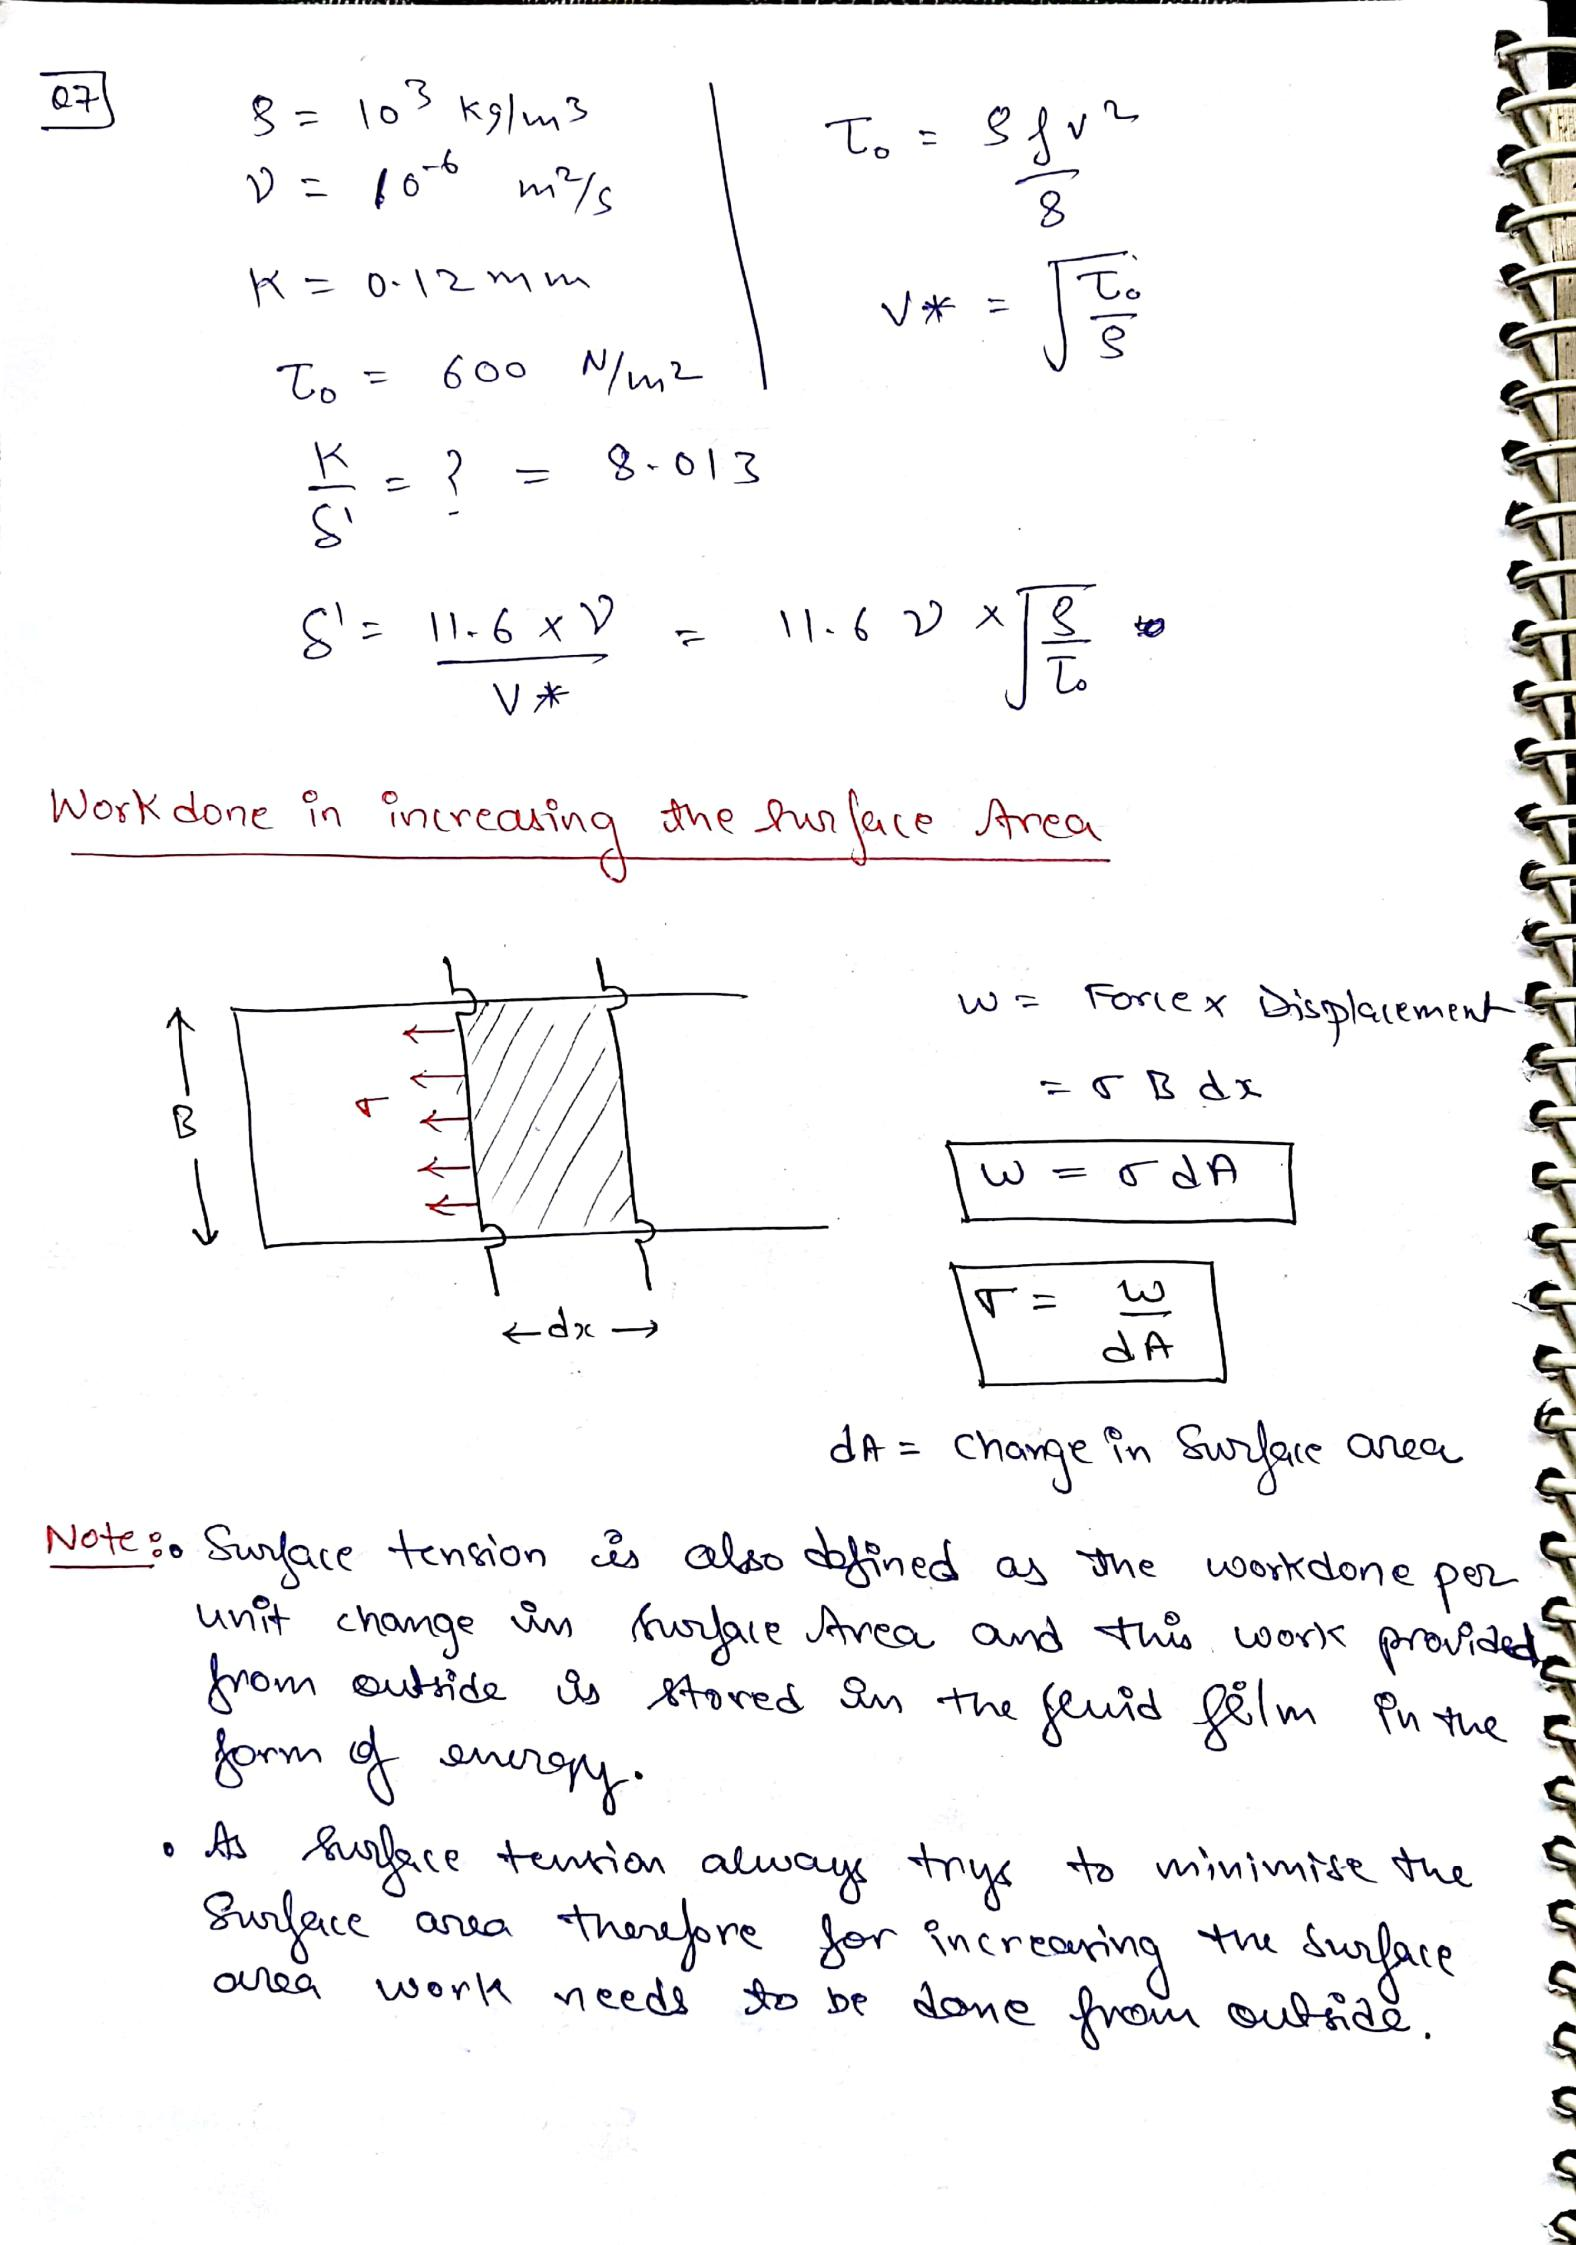 Q7
ρ = 10³ kg/m³
ν = 10⁻⁶ m²/s
K = 0.12 mm
τ₀ = 600 N/m²
K/δ' = ? = 8.013
τ₀ = ρfv²/8
V* = √(τ₀/ρ)
δ' = 11.6 × ν / V* = 11.6 ν × √(ρ/τ₀)
Work done in increasing the surface Area
B
σ
←dx→
W = Force x Displacement
= σ B dx
W = σ dA
σ = W/dA
dA = change in Surface area
Note:• Surface tension is also defined as the workdone per
unit change in surface Area and this work provided
from outside is stored in the fluid film in the
form of energy.
• As surface tension always trys to minimise the
Surface area therefore for increasing the surface
area work needs to be done from outside.